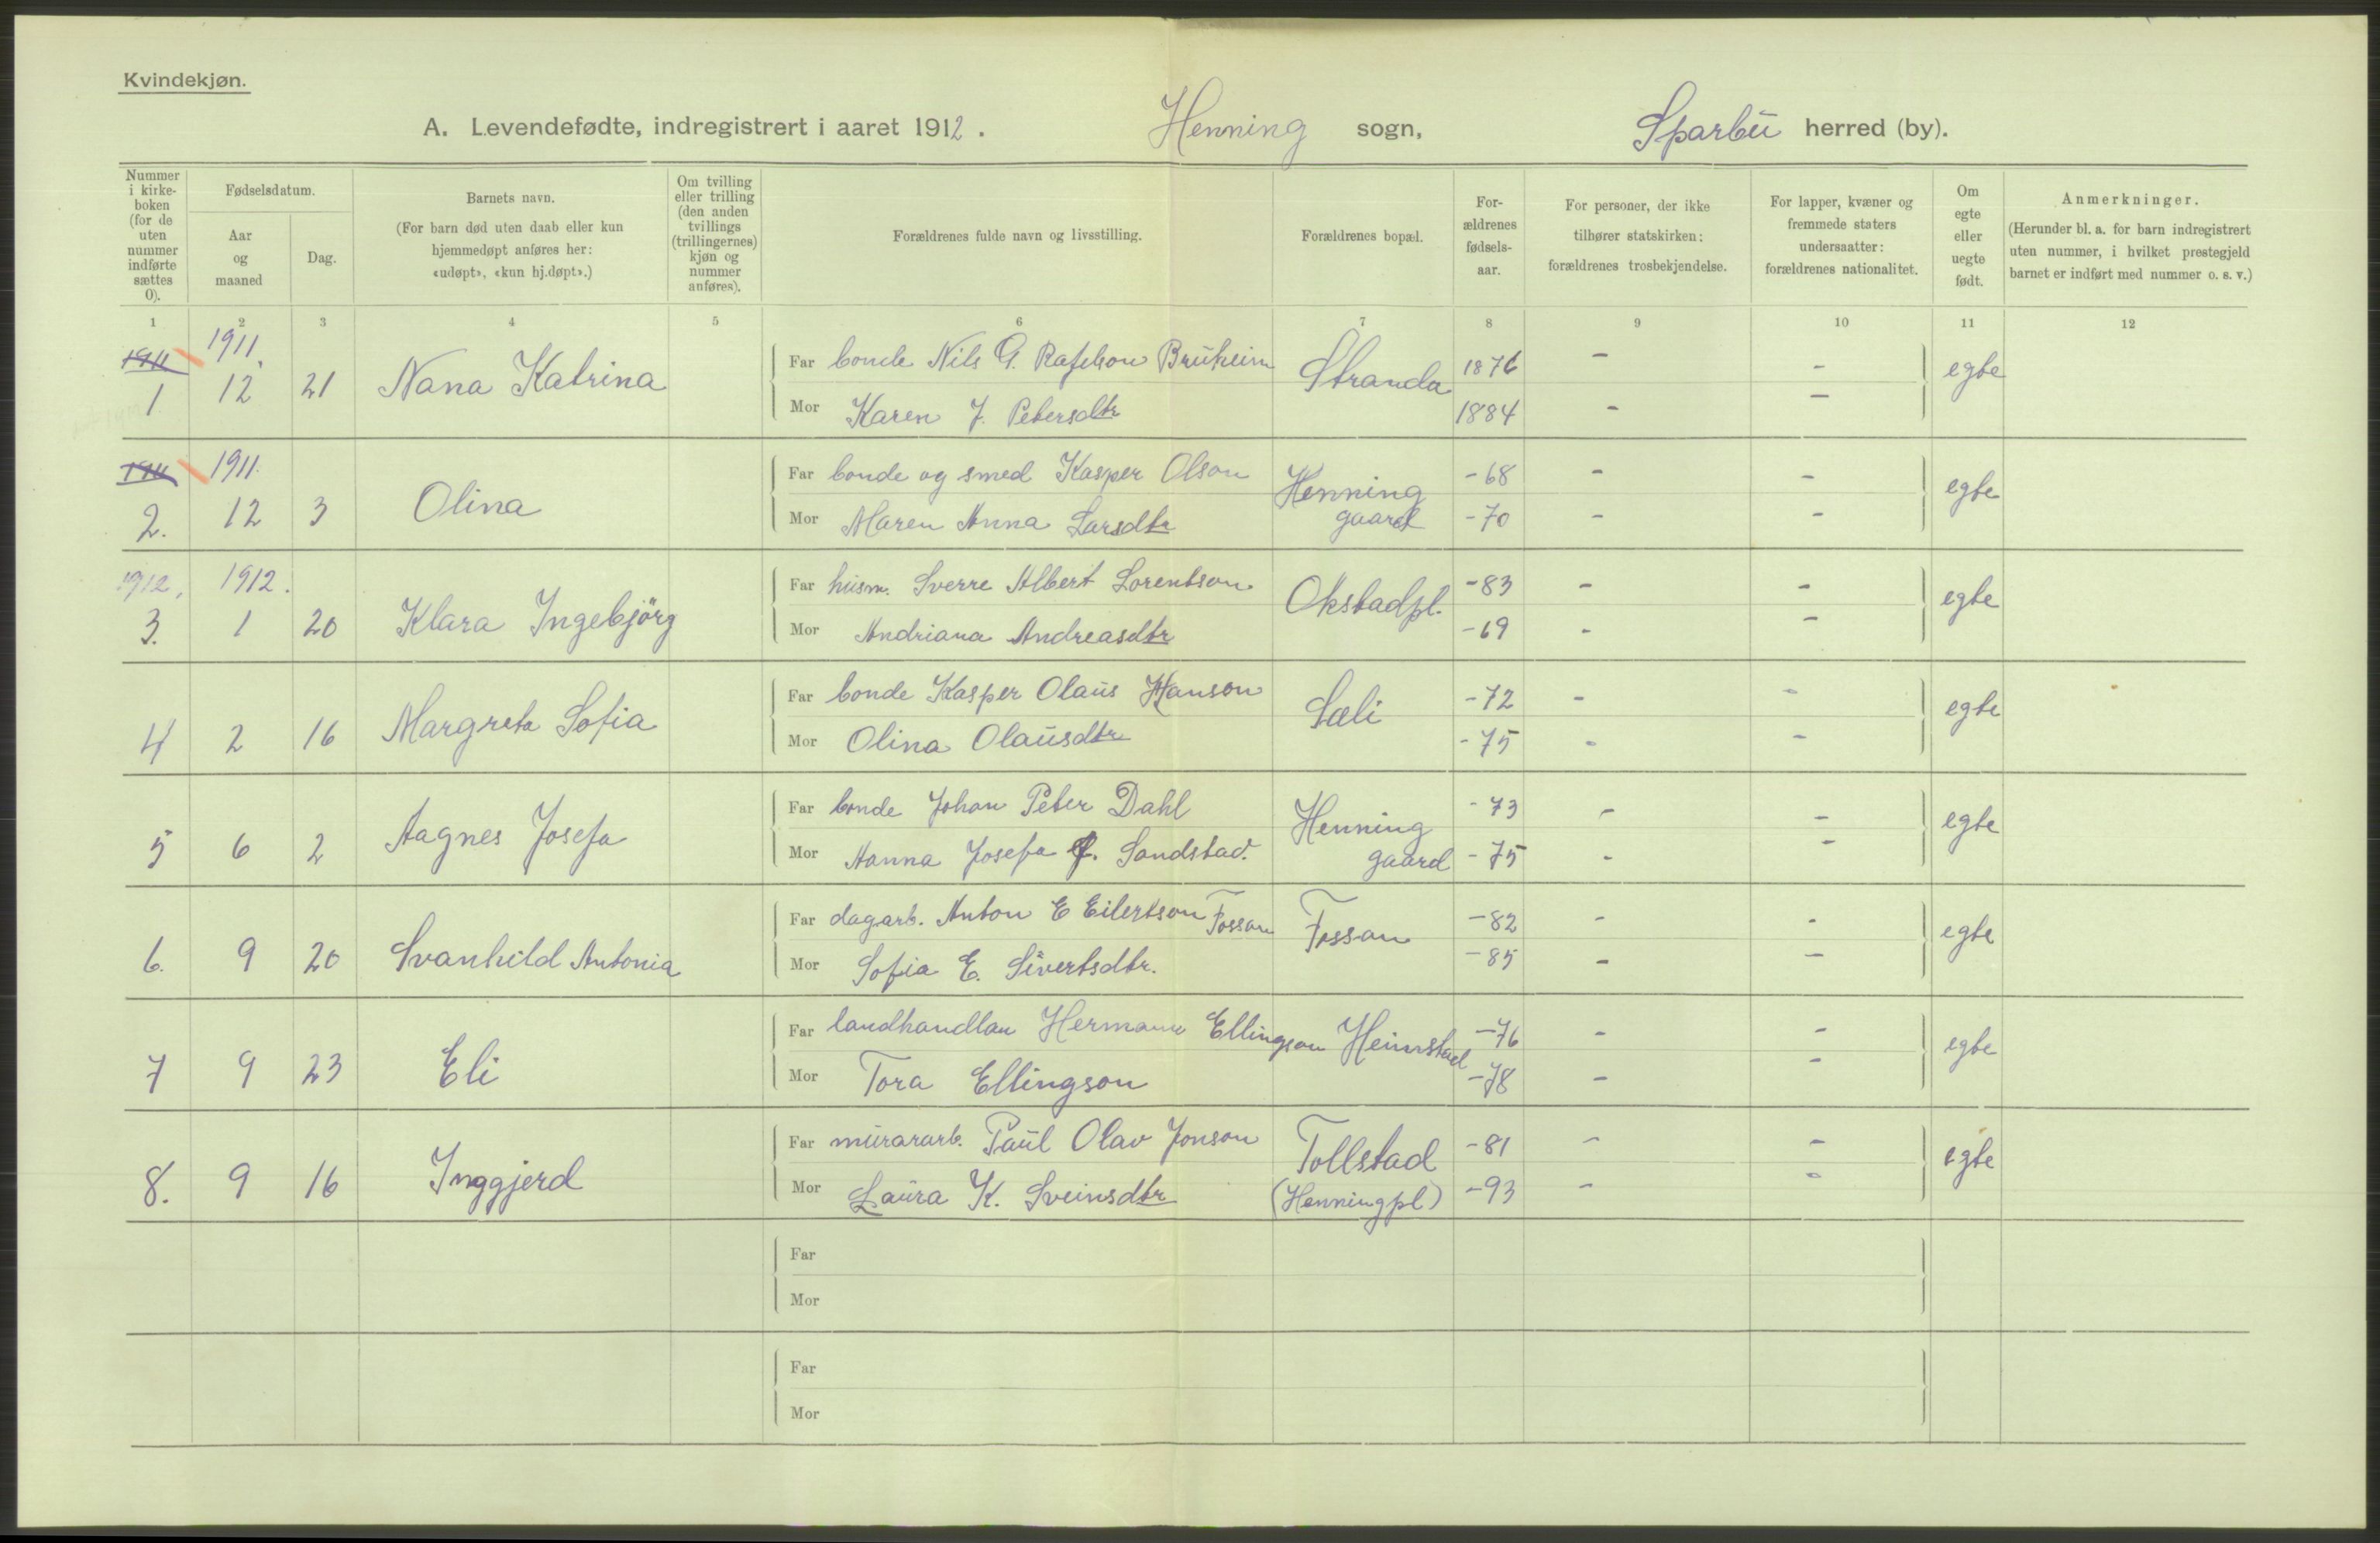 Kvindekjøn.
A. Levendefødte, indregistrert i aaret 1912. Henning sogn, Sparbu herred (by).
Nummer i kirke-boken (for de uten nummer indførte sættes 0).
Fødselsdatum.
Aar og maaned
Dag.
Barnets navn.
(For barn død uten daab eller kun hjemmedøpt anføres her: «udøpt», «kun hj.døpt».)
Om tvilling eller trilling (den anden tvillings (trillingernes) kjøn og nummer anføres).
Forældrenes fulde navn og livsstilling.
Forældrenes bopæl.
For-ældrenes fødsels-aar.
For personer, der ikke tilhører statskirken: forældrenes trosbekjendelse.
For lapper, kvæner og fremmede staters undersaatter: forældrenes nationalitet.
Om egte eller uegte født.
Anmerkninger.
(Herunder bl. a. for barn indregistrert uten nummer, i hvilket prestegjeld barnet er indført med nummer o. s. v.)
1 2 3 4 5 6 7 8 9 10 11 12
1911 1911.
1 12 21 Nana Katrina
Far bonde Nils G. Bruheim Stranda 1876 - - egte
Mor Karen J. Petersdtr 1884 - -
1911 1911.
2. 12 3 Olina
Far bonde og smed Kasper Olson Henning gaard -68 - - egte
Mor Maren Anna Larsdtr -70 - -
1912, 1912.
3. 1 20 Klara Ingebjörg
Far husm. Sverre Albert Lorentson Okstadpl. -83 - - egte
Mor Andriana Andreasdtr -69 - -
4 2 16 Margreta Sofia
Far bonde Kasper Olaus Hanson Sæli -72 - - egte
Mor Olina Olausdtr -75 - -
5 6 2 Aagnes Josefa
Far bonde Johan Peter Dahl Henning gaard -73 - - egte
Mor Hanna Josefa f. Sandstad. -75 - -
6. 9 20 Svanhild Antonia
Far dagarb. Anton E Eilertson Fossan Fossan -82 - - egte
Mor Sofia E. Sivertsdtr. -85 - -
7 9 23 Eli
Far landhandlar Hermann Ellingson Heimstad -76 - - egte
Mor Tora Ellingson -78 - -
8. 9 16 Inggjerd
Far murararb. Paul Olav Jonson Tollstad -81 - - egte
Mor Laura K. Sveinsdtr (Henningpl) -93 - -
Far
Mor
Far
Mor